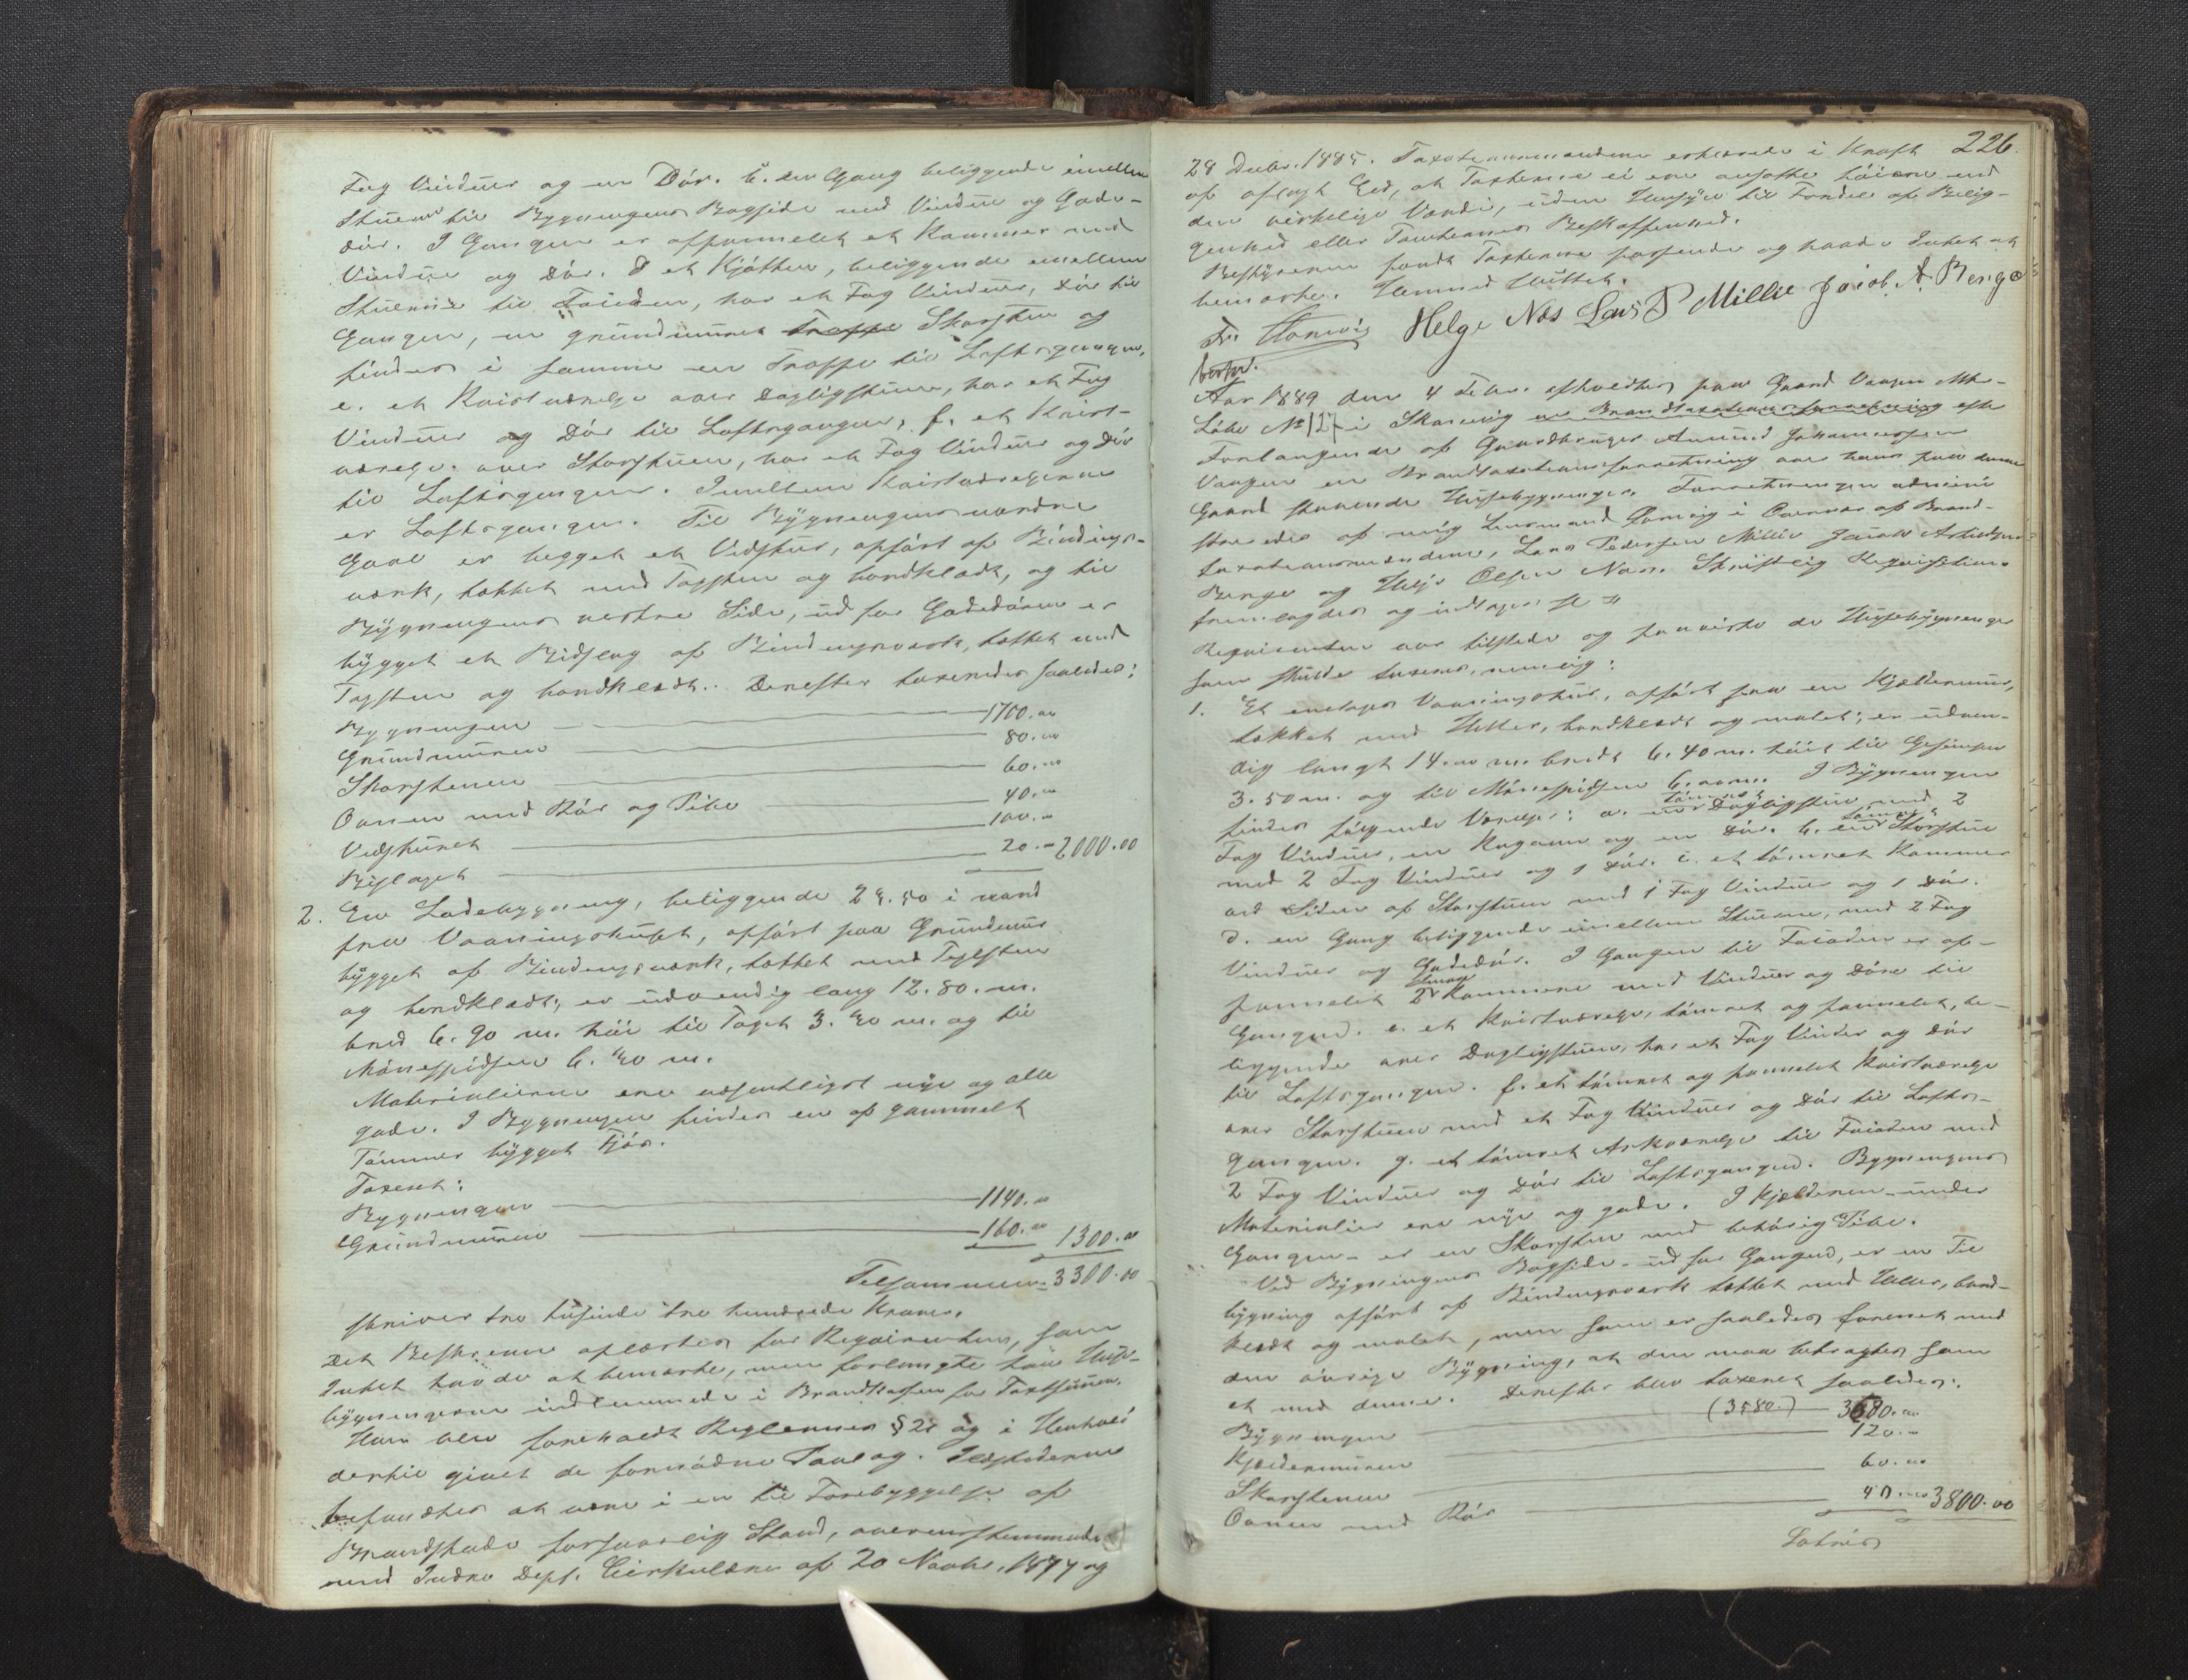 Fag Vinduer og en Dør. b. en Gang beliggende imellem
Stuerne til Bygningens Bagside med Vindue og Gade-
dør. I Gangen er afpannelet et Kammer med
Vindue og Dør. d et Kjøkken, beliggende imellem
Stuerne til Faiaden, har et Fag Vinduer, Dør til
Gangen, en grundmuret Skorsten og
findes i samme en Trappe til Loftsgangen,
e. et Kvistværelse over Dagligstuen, har et Fag
Vinduer og Dør til Loftsgangen, f. et Kvist-
værelse over Storstuen, har et Fag Vinduer og Dør
til Loftsgangen. Imellem Kvistværelserne
er Loftsgangen. Til Bygningens nordre
Gavl er bygget et Vedskur, opført af Bindings-
værk, tækket med Tagsten og bordklædt, og til
Bygningens vestre Side, ud for Gadedøren er
bygget et Bislag af Bindingsværk, tækket med
Tagsten og bordklædt. Derefter taxeredes saaledes:
Bygningen 1700.00
Grundmuren 80.00
Skorstenen 60.00
Ovnen med Rør og Pibe 40.00
Vedskuret 100.00
Bislaget 20.00 2000.00
2. En Ladebygning, beliggende 28.50 i nord
fra Vaaningshuset, opført paa Grundmur
bygget af Bindingsværk, tækket med Teglsten
og bordklædt; er udvendig lang 12.80. m.
bred 6.90 m. høi til Taget 3.40 m. og til
Mønespidsen 6.40 m.
Materialierne ere væsentligst nye og alle
gode. I Bygningen findes en af gammelt
Tømmer bygget Fjøs.
Taxeret:
Bygningen 1140.00
Grundmuren 160.00 1300.00
Tilsammen 3300.00
skriver tre tusinde tre hundrede Kroner.
Det Beskrevne oplæstes for Reqvirenten, som
Intet havde at bemærke, men forlangte sine Huse-
bygningerne indlemmede i Brandkassen for Taxtsummen.
Han blev foreholdt Reglernes § 25 og i Henhold
dertil givet de fornødne Paalæg. Ildstederne
befandtes at være i en til Forebyggelse af
Brandskade forsvarlig Stand, overensstemmende
med Indre Dept. Cirkulære af 20 Novbr. 1877 og
226.
28 Decbr. 1885. Taxationsmændene erklærede i Kraft
af aflagt Eed, at Taxterne ei ere ansatte høiere end
den virkelige Værdi, uden Hensyn til Fordel af Belig-
genhed eller Tomternes Beskaffenhed.
Bestyreren fandt Taxterne passende og havde Intet at
bemærke. Hermed sluttet.
Helge Næs Lars P Millie Jacob A. Berge
Aar 1889 den 4 Febr. afholdtes paa Gaard Vaagen Mtr-
Løbe No 121 i Skaanevig en Brandtaxationsforretning efter
Forlangende af Gaardbruger Amund Johannessen
Vaagen en Brandtaxationsforretning over hans paa denne
Gaard staaende Husebygninger. Forretningen administ-
reredes af mig Lensmand i Overvær af Brand-
taxationsmændene, Lars Pedersen Millie Jacob
Berge og Helge Olsen Næs. Skriftlig Reqvisition
fremlagdes og indtages
Reqvirenten var tilstede og paaviste de Husebygninger
som skulde taxeres, nemlig:
1. Et enetages Vaaningshus, opført paa en Kjældermur,
tækket med Heller, bordklædt og malet; er udven-
dig langt 14.00 m. bredt 6.40 m. høit til Gesimsen
3.50 m. og til Mønespidsen 6.00 m. I Bygningen
findes følgende Værelser: a. en tømret Dagligstue med 2
Fag Vinduer, en Kogeovn og en Dør. b. en tømret Storstue
med 2 Fag Vinduer og 1 Dør. c. et tømret Kammer
ved Siden af Storstuen med 1 Fag Vinduer og 1 Dør.
d. en Gang beliggende imellem Stuerne, med 2 Fag
Vinduer og Gadedør. I Gangen til Faiaden er af-
pannelet 2 smaa Kammere med Vinduer og Døre til
Gangen. e. et Kvistværelse, tømret og pannelet, be-
liggende over Dagligstuen, har et Fag Vinder og Dør
til Loftsgangen. f. et tømret og pannelet Kvistværelse
over Storstuen med et Fag Vinduer og Dør til Lofts-
gangen. g. et tømret Arkværelse til Faiaden med
2 Fag Vinduer og Dør til Loftsgangen. Bygningens
Materialier ere nye og gode. I Kjælderen under
Gangen er en Skorsten med behørig Pibe.
Ved Bygningens Bagside ud for Gangen, er en Til
bygning opført af Bindingsværk tækket med Heller, bord-
klædt og malet, men som er saaledes forenet med
den øvrige Bygning, at den maa betragtes som
et med denne. Derefter blev taxeret saaledes:
Bygningen (3580.) 3580.00
Kjældermuren 120.00
Skorstenen 60.00
Ovnen med Rør 40.00 3800.00
Latus